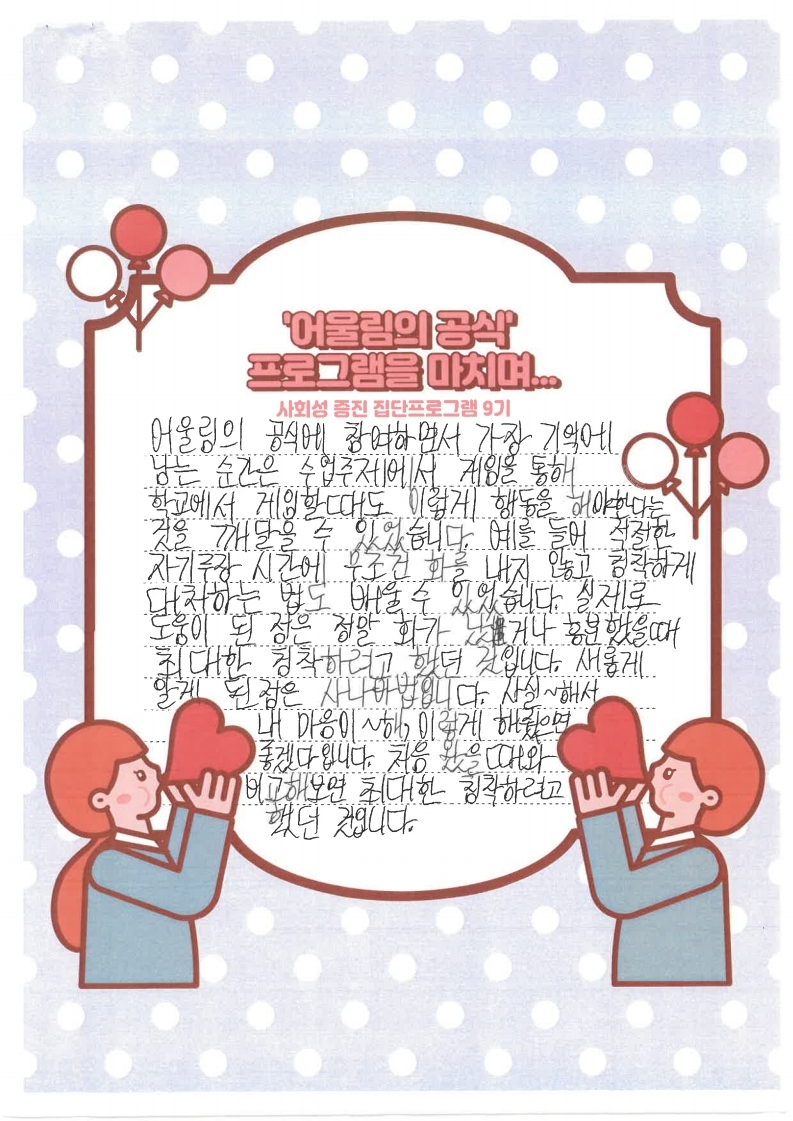 '어울림의 공식'
프로그램을 마치며...
사회성 증진 집단프로그램 9기
어울림의 공식에 참여하면서 가장 기억에
남는 순간은 수업주제에서 게임을 통해
학교에서 게임할때도 이렇게 행동을 해야한다는
것을 깨달을 수 있었습니다. 예를 들어 적절한
자기주장 시간에 무조건 화를 내지 않고 침착하게
대처하는 법도 배울 수 있었습니다. 실제로
도움이 된 점은 정말 화가 났거나 흥분했을때
최대한 침착하려고 했던 것입니다. 새롭게
알게 된점은 사나마바법입니다. 사실~해서
내 마음이 ~해, 이렇게 해줬으면
좋겠다입니다. 처음 왔을때와
비교해보면 최대한 침착하려고
했던 것입니다.